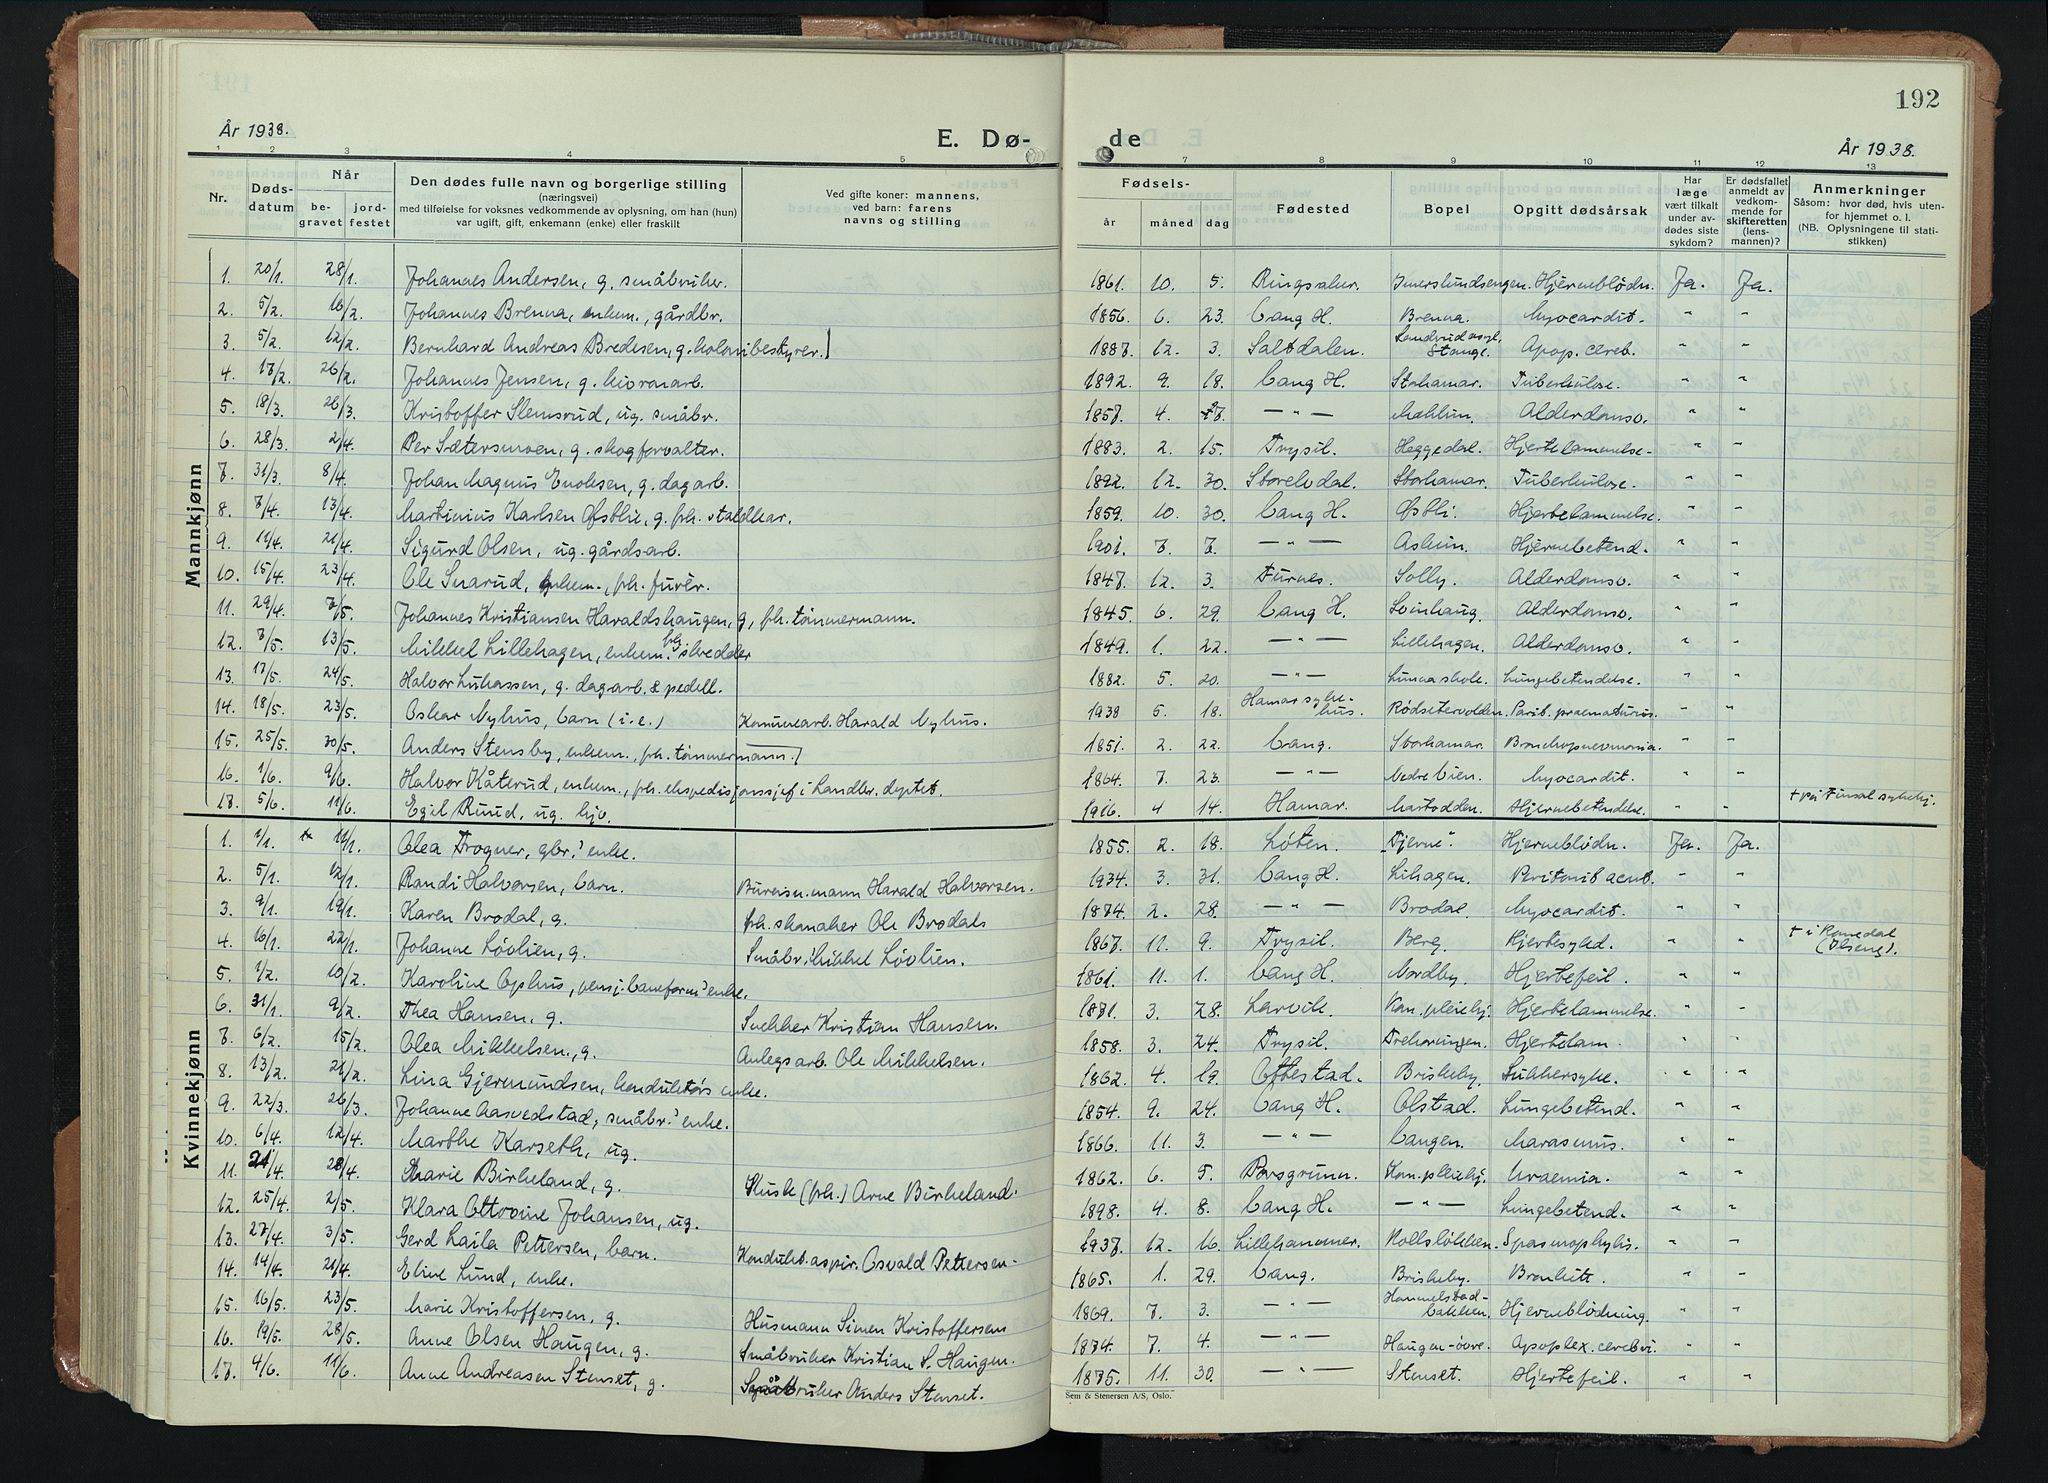 192
År 1938.
E. Dø-
de
År 1938.
1 2 3 4 5 7 8 9 10 11 12 13
Nr.
Døds-
datum
Når
be-
gravet
jord-
festet
Den dødes fulle navn og borgerlige stilling
(næringsvei)
med tilføielse for voksnes vedkommende av oplysning, om han (hun)
var ugift, gift, enkemann (enke) eller fraskilt
Ved gifte koner: mannens,
ved barn: farens
navns og stilling
Fødsels-
år måned dag
Fødested
Bopel
Opgitt dødsårsak
Har
læge
vært tilkalt
under av-
dødes siste
sykdom?
Er dødsfallet
anmeldt av
vedkom-
mende for
skifteretten
(lens-
mannen)?
Anmerkninger
Såsom: hvor død, hvis uten-
for hjemmet o. l.
(NB. Oplysningene til stati-
stikken)
Mannkjønn
1. 20/1. 28/1. Johannes Andersen, g. småbruker. 1861. 10. 5. Ringsaker. Imerslundsengen. Hjerneblødn. Ja. Ja.
2. 5/2. 16/2. Johannes Brenna, enkem., gårdbr. 1856. 6. 23. Vang H. Brenna. Myocardit. " "
3. 5/2. 12/2. Bernhard Andreas Bredesen, g. kolonibestyrer. 1887. 12. 3. Saltdalen. Sandrud asyl, Stange. Apop. cereb. " "
4. 17/2. 26/2. Johannes Jensen, g. 1892. 9. 18. Vang H. Stohamar. Tuberkulose. " "
5. 18/3. 26/3. Kristoffer Slemsrud, ug. småbr. 1857. 4. — " — Mæhlum. Alderdomsv. " "
6. 28/3. 2/4. Per Sætersmoen, g. skogforvalter. 1883. 2. 15. Trysil. Heggedal. Hjertelammelse. " "
7. 31/3. 8/4. Johan Magnus Enoksen, g. dagarb. 1892. 12. 30. Storelvdal. Storhamar. Tuberkulose. " "
8. 7/4. 13/4. Martinius Karlsen Østlie, g. fhv. staldkar. 1859. 10. 30. Vang H. Østli. Hjertelammelse. " "
9. 14/4. 21/4. Sigurd Olsen, ug. gårdsarb. 1901. 7. 7. — " — Askum. Hjernebetend. " "
10. 15/4. 23/4. Ole Snarud, enkem., fhv. furér. 1847. 12. 3. Furnes. Solly. Alderdomsv. " "
11. 29/4. 7/5. Johannes Kristiansen Haraldshaugen, g, fhv. tømmermann. 1845. 6. 29. Vang H. Svinhaug. Alderdomsv. " "
12. 7/5. 13/5. Mikkel Lillehagen, enkem. fhv. skredder 1849. 1. 22. — " — Lillehagen. Alderdomsv. " "
13. 17/5. 24/5. Halvor Lukassen, g. dagarb. & pedell. 1882. 5. 20. — " — Lunna skole. Lungebetendelse. " "
14. 18/5. 23/5. Oskar Nyhus, barn (i.e.) Kommunearb. Harald Nyhus. 1938 5. 18. Hamar sykehus. Rødsetervolden. Parit. praematurus. " "
15. 25/5. 30/5. Anders Stensby, enkem., fhv. tømmermann. 1851. 2. 22. Vang. Storhamar. Bronchopneumonia. " "
16. 1/6. 9/6. Halvor Kåterud, enkem., fhv. ekspedisjonssjef i Landbr. deptet. 1864. 7. 23. — " — Nedre Vien. Myocardit. " "
17. 5/6. 11/6. Egil Ruud, ug. 1916. 4 14. Hamar. Martodden. Hjernebetendelse. " " † på Finsal sykehj.
Kvinnekjønn
1. 1/1. 11/1. Olea Trogner, gbr.' enke. 1855. 2. 18. Løten. "Tjerne". Hjerneblødn. Ja. Ja.
2. 5/1. 12/1. Randi Halvorsen, barn. Bureisn. mann Harald Halvorsen. 1934. 3. 31. Vang H. Lihagen. Peritonit acut. " "
3. 9/1. 19/1. Karen Brodal, g. fhv. skomaker Ole Brodals 1874. 2. 28. — " — Brodal. Myocardit. " "
4. 16/1. 22/1. Johanne Løvlien, g. Småbr. Mikkel Løvlien. 1867. 11. 9. Trysil. Berg. Hjertesykd. " " † i Romedal
5. 1/2. 10/2. Karoline Ophus, pensj. baneform' enke. 1861. 11. 1. Vang H. Nordby. Hjertefeil. " "
6. 31/1. 9/2. Thea Hansen, g. Snekker Kristian Hansen. 1871. 3. 28. Larvik. Kom. pleiehj. Hjertelammelse. " "
7. 6/2. 15/2. Olea Mikkelsen, g. Anlegsarb. Ole Mikkelsen. 1858. 3. 24. Trysil. Trehørningen. Hjertelam. " "
8. 13/2. 21/2. Lina Gjermundsen, konduktørs enke. 1862. 4. 19. Ottestad. Briskeby. Sukkersyke. " "
9. 22/3. 26/3. Johanne Aasvedstad, småbr.' enke. 1854. 9. 24. Vang H. Olstad. Lungebetend. " "
10. 6/4. 12/4. Marthe Karseth, ug. 1866. 11. 3. — " — Vangen. Marasmus. " "
11. 21/4. 28/4. Marie Birkeland, g. Kusk (fhv.) Arne Birkeland. 1862. 6. 5. Porsgrunn. Kom. pleiehj. Uraemia. " "
12. 25/4. 2/5. Klara Ottovine Johansen, ug. 1898. 4. 8. Vang H. — " — Lungebetend. " "
13. 27/4. 3/5. Gerd Laila Pettersen, barn. Kondukt. aspir. Osvald Pettersen. 1937. 12. 16. Lillehammer. Kollsløkken. Spasmophylis. " "
14. 14/4. 21/4. Eline Lund, enke. 1865. 1. 29. Vang. Briskeby. Bronkitt. " "
15. 16/5. 23/5. Marie Kristoffersen, g. Husmann Simen Kristoffersens 1869. 7. 3. — " — Hommelstadbakken. Hjerneblødning. " "
16. 19/5. 28/5. Anne Olsen Haugen, g. Småbruker Kristian S. Haugen. 1874. 7. 4. — " — Haugen-øvre. Apoplex. cerebri. " "
17. 4/6. 11/6. Anne Andreasen Stenset, g. Småbruker Anders Stenset. 1875. 11. 30. — " — Stenset. Hjertefeil. " "
Sem & Stenersen A/S, Oslo.